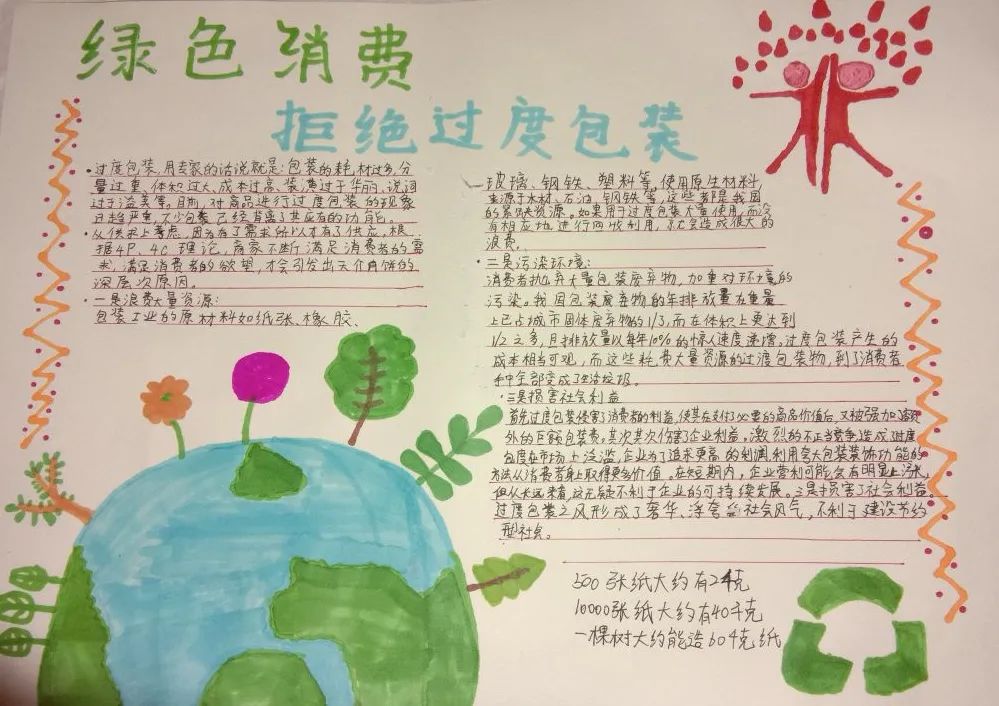 绿色消费
拒绝过度包装
·过度包装,用专家的话说就是:包装的耗材过多、分
量过重、体积过大、成本过高、装潢过于华丽、说词
过于溢美等。目前,对商品进行过度包装的现象
日趋严重,不少包装已经背离了其应有的功能。
·从供求上考虑,因为有了需求所以才有了供应,根
据4P、4C理论,商家不断满足消费者的需
求,满足消费者的欲望,才会引发出天价月饼的
深层次原因。
·一是浪费大量资源:
包装工业的原材料如纸张、橡胶、
玻璃、钢铁、塑料等,使用原生材料,
来源于木材、石油、钢铁等,这些都是我国
的紧缺资源。如果用于过度包装大量使用,而没
有相应地进行回收利用,就会造成很大的
浪费。
·二是污染环境:
消费者抛弃大量包装废弃物,加重对环境的
污染。我国包装废弃物的年排放量在重量
上已占城市固体废弃物的1/3,而在体积上更达到
1/2之多,且排放量以每年10%的惊人速度递增。过度包装产生的
成本相当可观,而这些耗费大量资源的过渡包装物,到了消费者
手中全部变成了生活垃圾。
·三是损害社会利益
首先过度包装侵害了消费者的利益,使其在支付了必要的商品价值后,又被强加了额
外的巨额包装费。其次其次伤害企业利益。激烈的不正当竞争造成过度
包度在市场上泛滥,企业为了追求更高的利润利用夸大包装装饰功能的
方法从消费者身上取得更多价值。在短期内,企业营利可能会有明显上涨,
但从长远来看,这无疑不利于企业的可持续发展。三是损害了社会利益。
过度包装之风形成了奢华、浮夸的社会风气,不利于建设节约
型社会。
500张纸大约有2千克
10000张纸大约有40千克
一棵树大约能造60千克纸